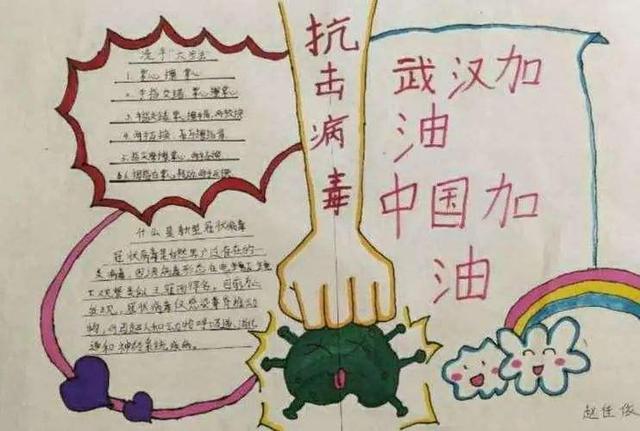 抗击病毒
洗手"六步法"
1. 掌心擦掌心
2. 手指交错,掌心擦掌心
3. 手指交错,掌心擦手背,两手互换
4. 两手互握,互擦指背
5. 指尖摩擦掌心,两手互换
6. 拇指在掌心转动,两手互换
什么是新型冠状病毒
冠状病毒是自然界广泛存在的一
类病毒,因该病毒形态在电镜
下观察类似王冠而得名。目前为止
发现,冠状病毒仅感染脊椎动
物,可引起人和动物呼吸道、消化
道和神经系统疾病。
武汉加
油
中国加
油
赵佳俊